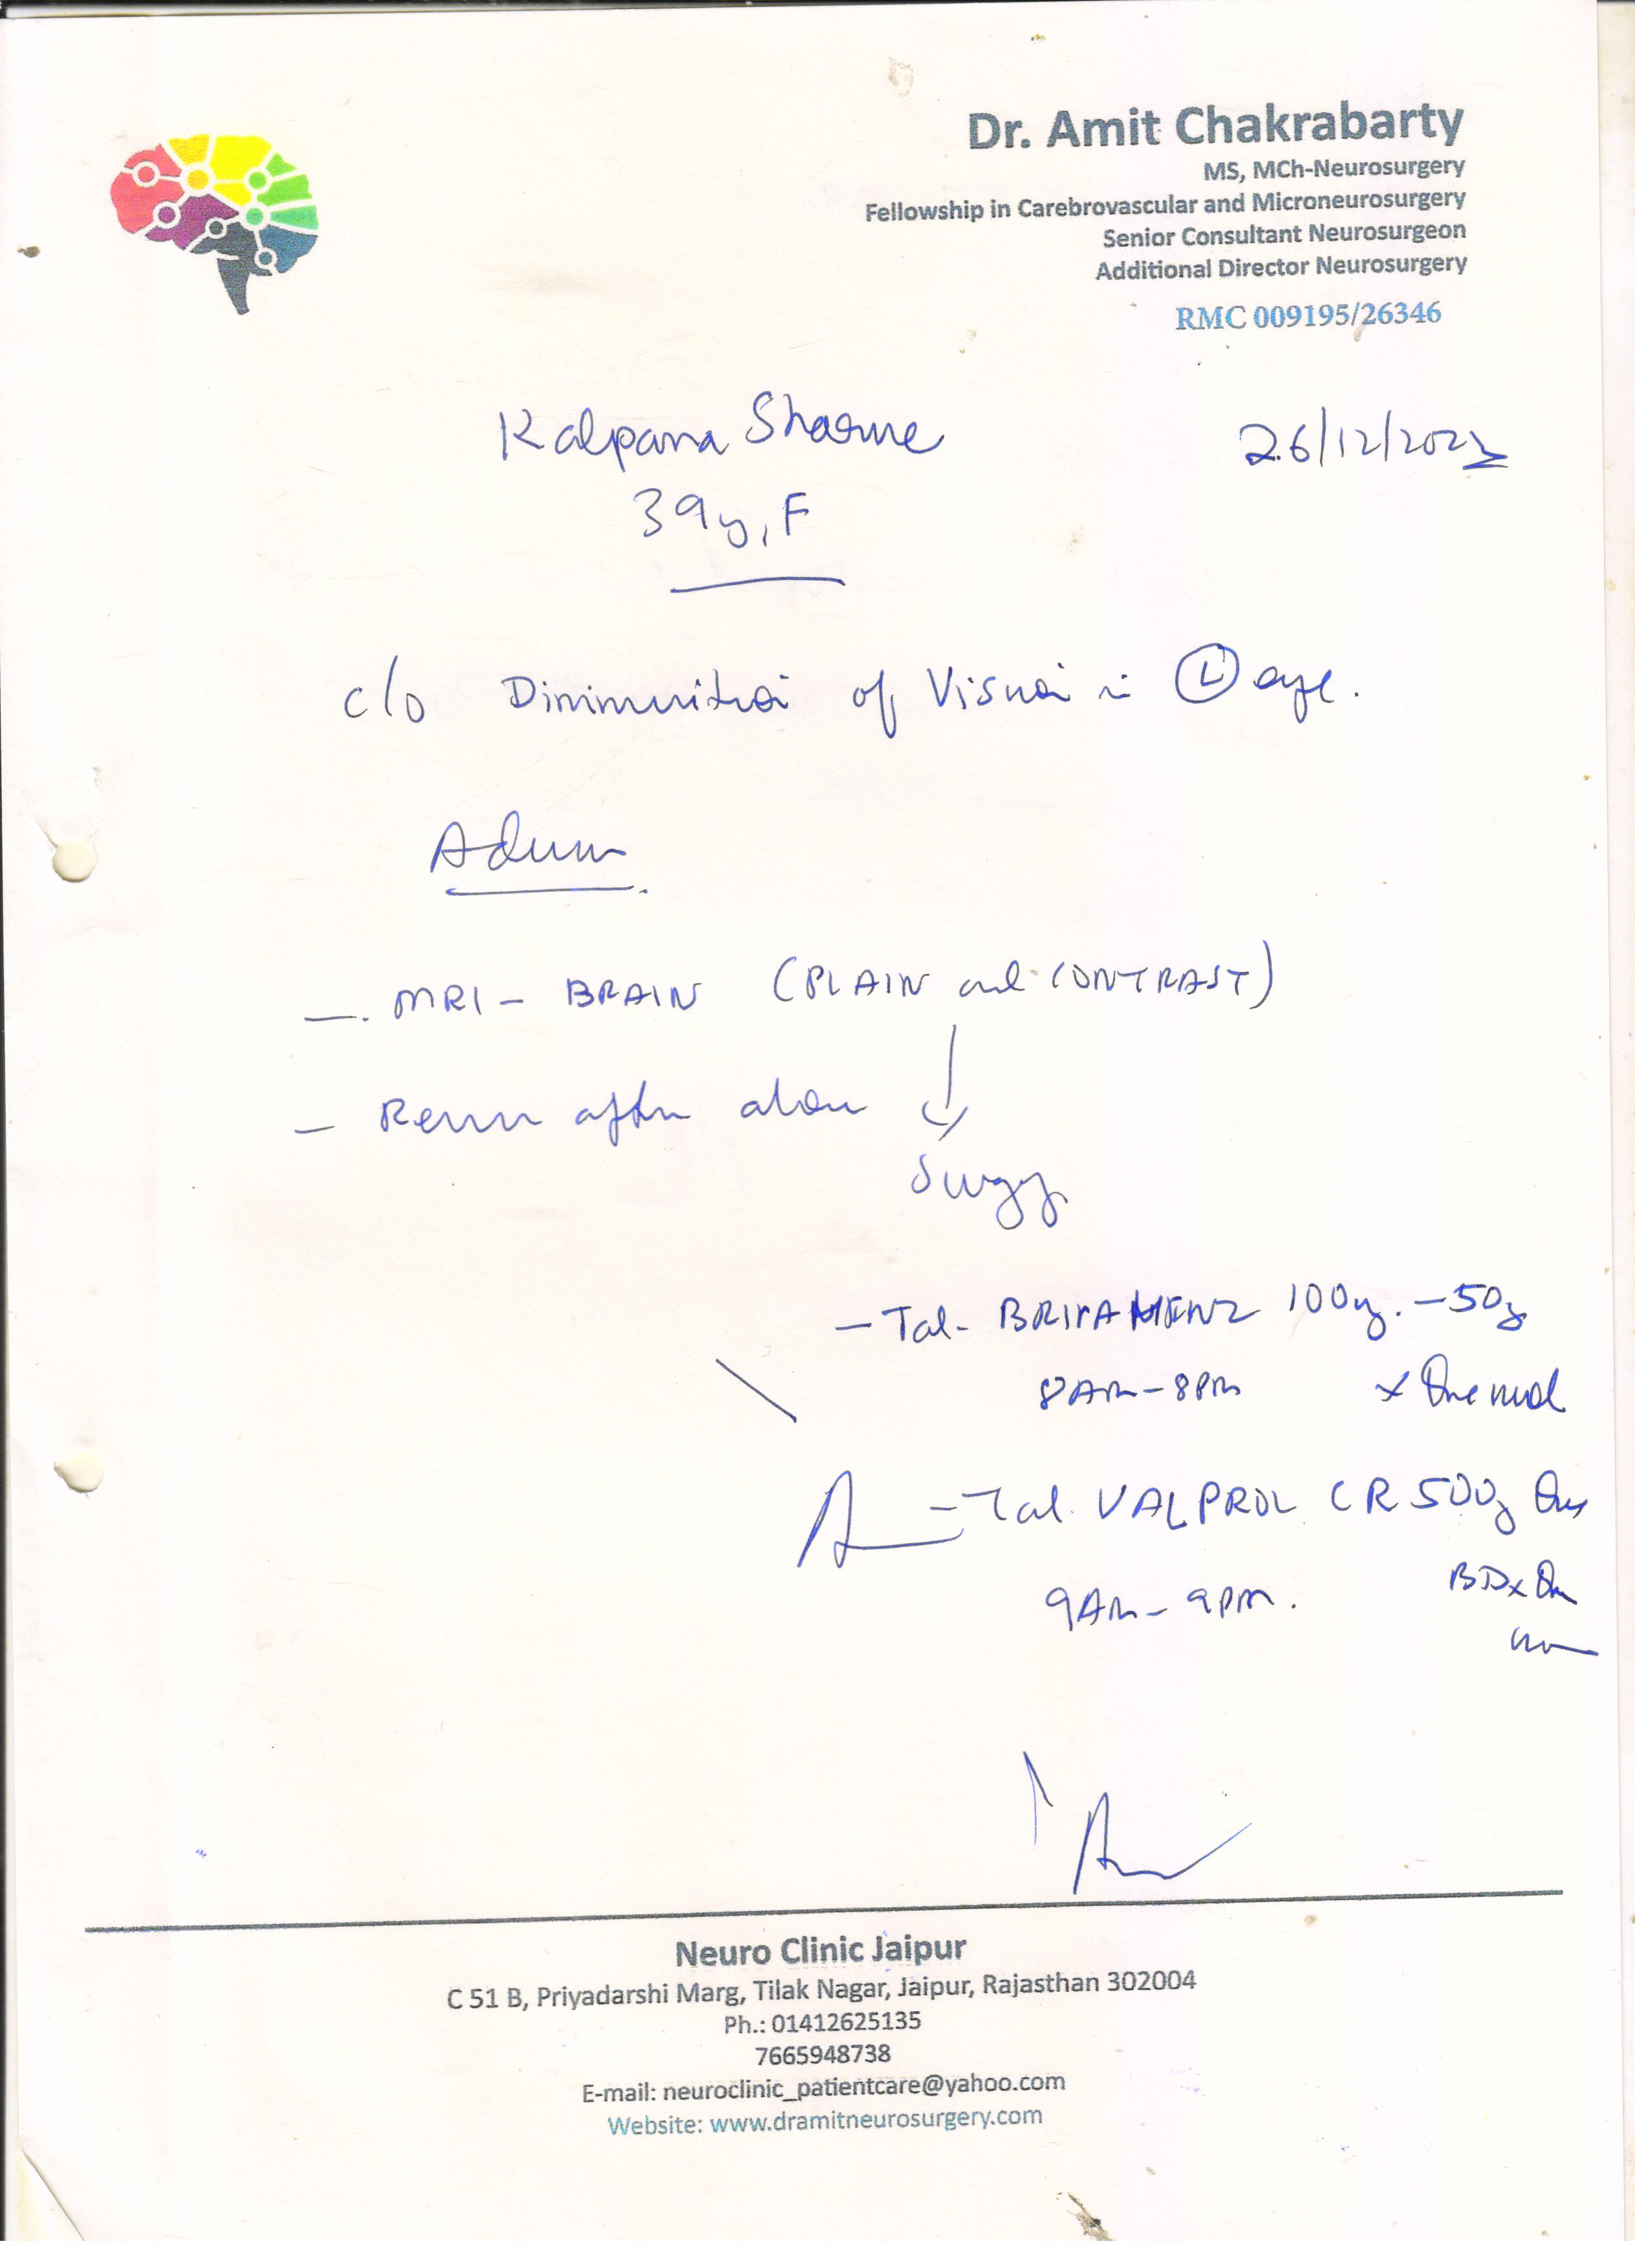 Dr. Amit Chakrabarty
MS, MCh-Neurosurgery
Fellowship in Carebrovascular and Microneurosurgery
Senior Consultant Neurosurgeon
Additional Director Neurosurgery
RMC 009195/26346
Kalpana Sharma 26/12/2022
39y, F
c/o Diminution of Vision in (L) eye.
Advice
- MRI - BRAIN (PLAIN and CONTRAST)
- Review after above
Surgery
- Tab. 100mg - 50mg
8AM - 8PM x One
- Tab. VALPROL CR 500mg One
9AM - 9PM. BD x One
Neuro Clinic Jaipur
C 51 B, Priyadarshi Marg, Tilak Nagar, Jaipur, Rajasthan 302004
Ph.: 01412625135
7665948738
E-mail: neuroclinic_patientcare@yahoo.com
Website: www.dramitneurosurgery.com